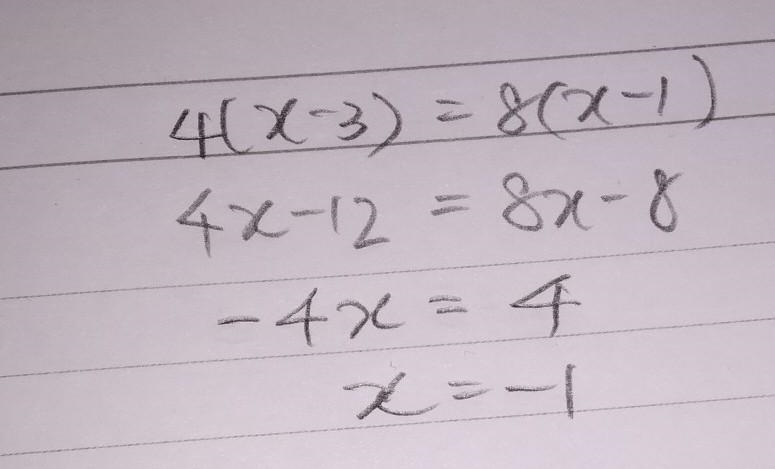 4(x-3) = 8(x-1)
4x-12 = 8x-8
-4x = 4
x = -1